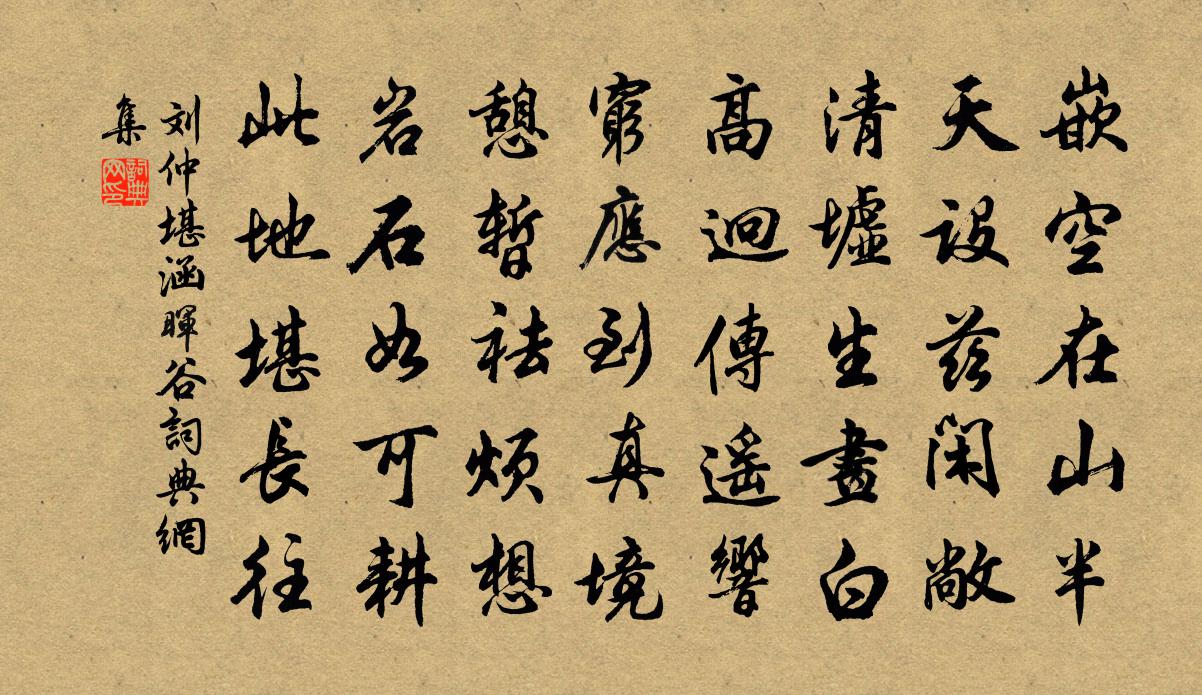 嵌空在山半
天設茲閑敞
清墟生晝白
高迴傳遥響
窮應到真境
憩暫祛烦想
岩石如可耕
此地堪長往
刘仲堪涵暉谷詞典網
集
詞典
网印